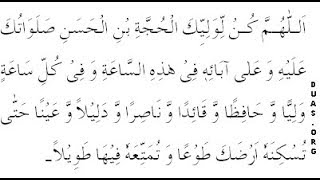 اَللّٰهُمَّ كُنْ لِّوَلِيِّكَ الْحُجَّةِ بْنِ الْحَسَنِ صَلَوَاتُكَ
عَلَيْهِ وَ عَلٰى آبَائِهِ فِيْ هٰذِهِ السَّاعَةِ وَ فِيْ كُلِّ سَاعَةٍ
وَلِيًّا وَّ حَافِظًا وَّ قَائِدًا وَّ نَاصِرًا وَّ دَلِيْلاً وَّ عَيْنًا حَتّٰى
تُسْكِنَهٗ اَرْضَكَ طَوْعًا وَ تُمَتِّعَهٗ فِيْهَا طَوِيْلاً۔
DUAS.ORG